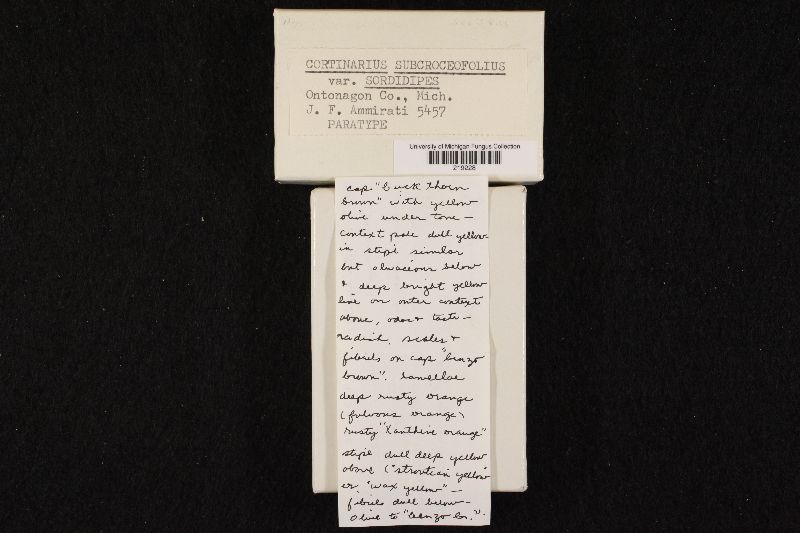 CORTINARIUS SUBCROCEOFOLIUS
var. SORDIDIPES
Ontonagon Co., Mich.
J. F. Ammirati 5457
PARATYPE
University of Michigan Fungus Collection
219228
cap "buck thorn
brown" with yellow
olive under tone -
context pale dull yellow -
in stipe similar
but olivaceous below
& deep bright yellow
line on outer context
above, odor & taste -
radish, scales &
fibrils on cap "benzo
brown". lamellae
deep rusty orange
(fulvous orange,
rusty "Xanthine orange"
stipe dull deep yellow
above ("strontian yellow"
or "wax yellow" -
fibrils dull below -
olive to "benzo br.".